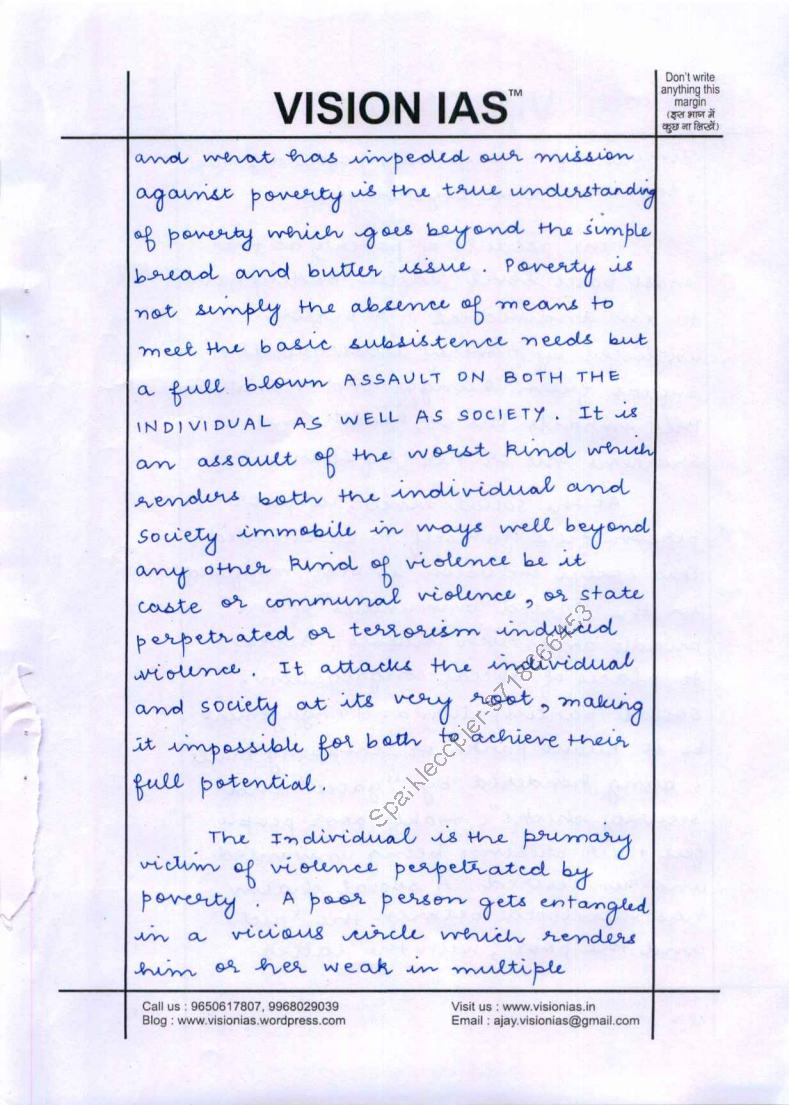 Don't write
anything this
margin
(इस भाग में
कुछ ना लिखें)
VISION IAS™
and what has impeded our mission
against poverty is the true understanding
of poverty which goes beyond the simple
bread and butter issue. Poverty is
not simply the absence of means to
meet the basic subsistence needs but
a full blown ASSAULT ON BOTH THE
INDIVIDUAL AS WELL AS SOCIETY. It is
an assault of the worst kind which
renders both the individual and
society immobile in ways well beyond
any other kind of violence be it
caste or communal violence, or state
perpetrated or terrorism induced
violence. It attacks the individual
and society at its very root, making
it impossible for both to achieve their
full potential.
The Individual is the primary
victim of violence perpetrated by
poverty. A poor person gets entangled
in a vicious circle which renders
him or her weak in multiple
Call us : 9650617807, 9968029039
Blog : www.visionias.wordpress.com
Visit us : www.visionias.in
Email : ajay.visionias@gmail.com